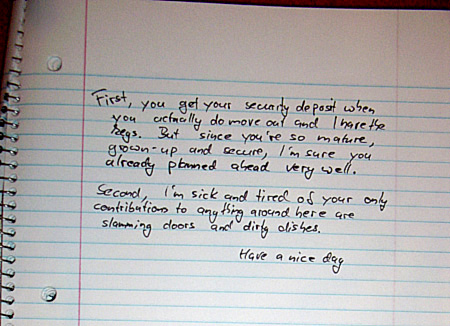 First, you get your security deposit when
you actually do move out and I have the
keys. But since you're so mature,
grown-up and secure, I'm sure you
already planned ahead very well.
Second, I'm sick and tired of your only
contributions to anything around here are
slamming doors and dirty dishes.
Have a nice day